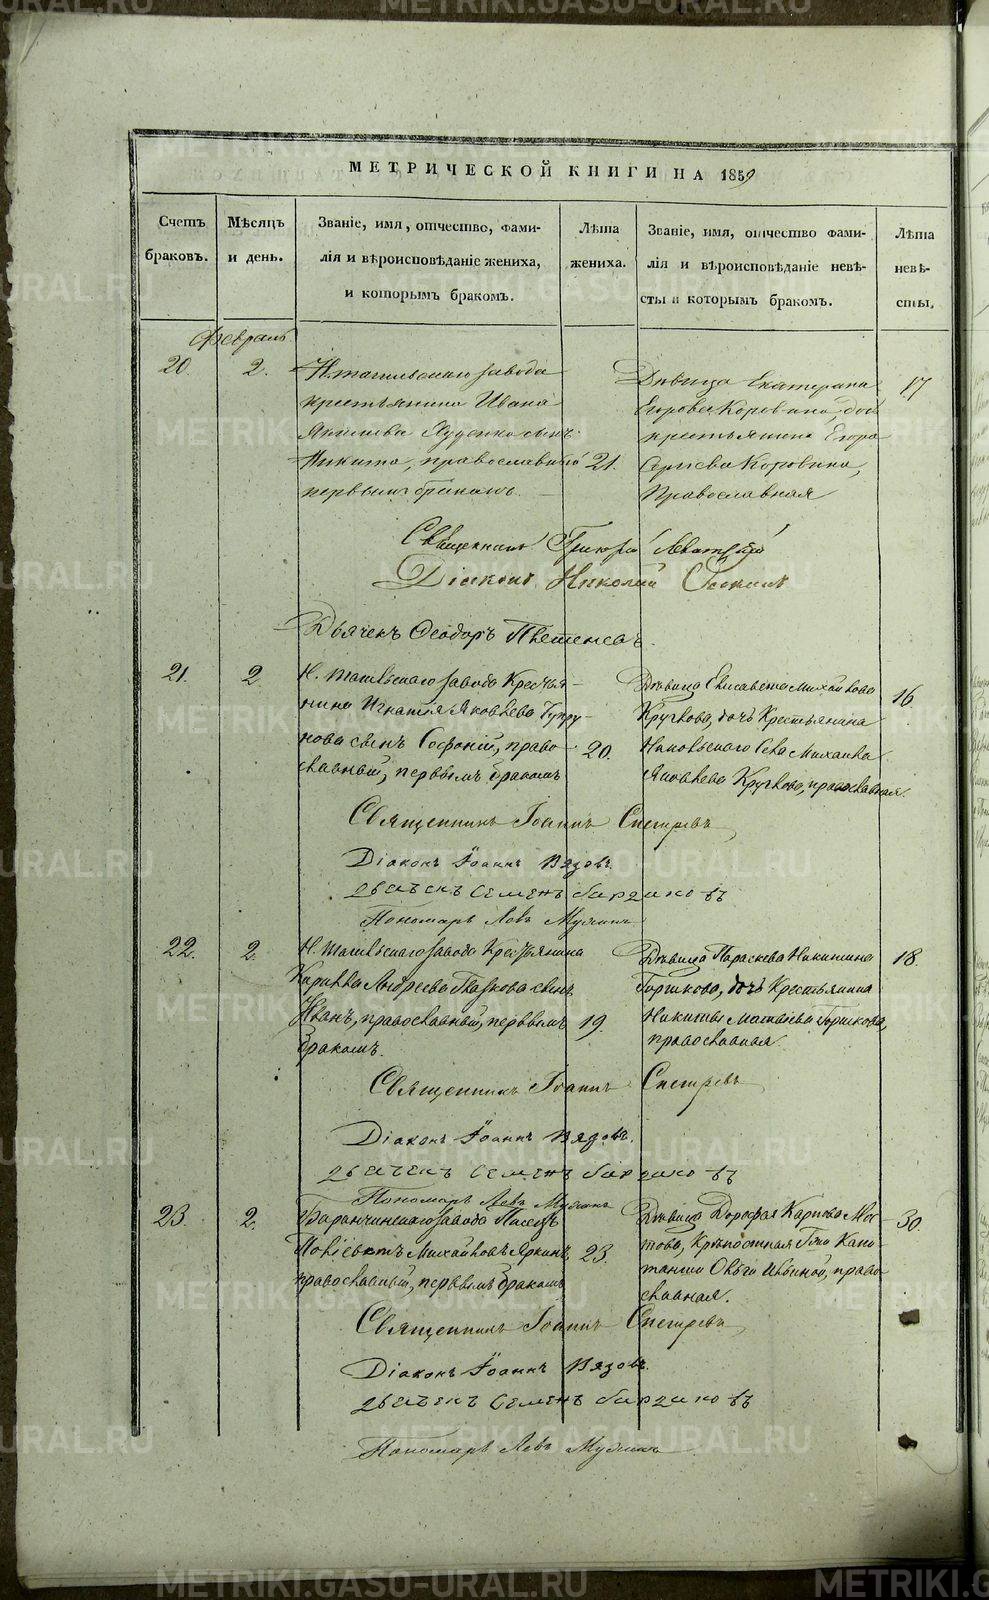 МЕТРИЧЕСКОЙ КНИГИ НА 1859
Счетъ браковъ.
Мѣсяцъ и день.
Званіе, имя, отчество, фами-
лія и вѣроисповѣданіе жениха,
и которымъ бракомъ.
Лѣта жениха.
Званіе, имя, отчество фами-
лія и вѣроисповѣданіе невѣ-
сты и которымъ бракомъ.
Лѣта невѣ-
сты.
Февраль
20. 2.
Н. тагильскаго завода
крестьянина Ивана
сынъ
Никита, православный 21.
первымъ бракомъ
Дѣвица Екатерина
Егорова Коровина, доч
крестьянина Егора
Коровина,
Православная
17
Священникъ Григорій
Діаконъ Николай
Дьячекъ Феодоръ
21. 2
Н. Тагильскаго завода Крестья-
нина Игнатія Яковлева
нова сынъ Софоній, право-
славный, первымъ бракомъ
20.
Дѣвица Елисавета Михайлова
Круглова, дочь Крестьянина
Михаила
Яковлева Круглова, православная.
16
Священникъ Іоаннъ Снегиревъ
Діаконъ Іоаннъ Вязовъ.
Дьячекъ Семенъ
Пономарь Левъ
22. 2.
Н. Тагильскаго завода Крестьянина
Кирилла Андреева сынъ
Иванъ, православный, первымъ
бракомъ.
19.
Дѣвица Параскева Никитина
Горшкова, дочь Крестьянина
Никиты Матвѣева Горшкова,
православная.
18.
Священникъ Іоаннъ Снегиревъ
Діаконъ Іоаннъ Вязовъ.
Дьячекъ Семенъ
Пономарь Левъ
23. 2.
Баранчинскаго завода Писецъ
Михайловъ Яркинъ,
православный, первымъ бракомъ
23.
Дѣвица Дорофея Карпова Мос-
това, Крѣпостная Гжи Капи-
танши Ольги Ильиной, право-
славная.
30.
Священникъ Іоаннъ Снегиревъ
Діаконъ Іоаннъ Вязовъ.
Дьячекъ Семенъ
Пономарь Левъ
METRIKI.GASO-URAL.RU